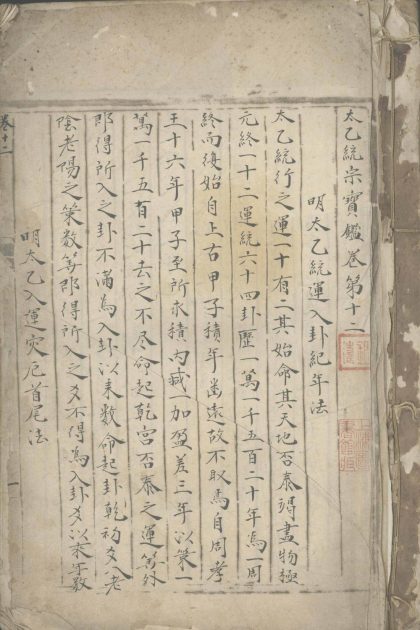 太乙統宗寶鑑卷第十二
明太乙統運入卦紀年法
太乙統行之運一十有二其始命其天地否泰竭盡物極
元終一十二運統六十四卦歷一萬一千五百二十年為一周
終而復始自上古甲子積年凾遠故不取焉自周孝
王十六年甲子至所求積內減一加盈差三年以策一
萬一千五百二十去之不尽命起乾宮否泰之運筭外
即得所入之卦不滿為入卦以來數命起卦乾初爻入老
陰老陽之策數筭即得所入之爻不得為入卦爻以來年數
明太乙入運灾厄首尾法
卷十二